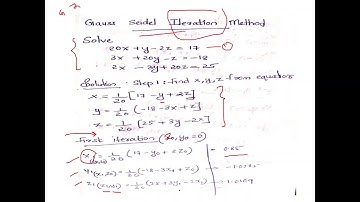 Gauss Seidel Iteration Method
Solve
20x + y - 2z = 17
3x + 20y - z = -18
2x - 3y + 20z = 25
Solution. Step 1: Find x, y, z from equation
x = 1/20 [17 - y + 2z]
y = 1/20 [-18 - 3x + z]
z = 1/20 [25 + 3y - 2x]
First iteration (z0, y0 = 0)
x1 = 1/20 (17 - y0 + 2z0) 0.85
y1 = 1/20 (-18 - 3x1 + z0)
z1 = 1/20 (25 + 3y1 - 2x1) 1.0109